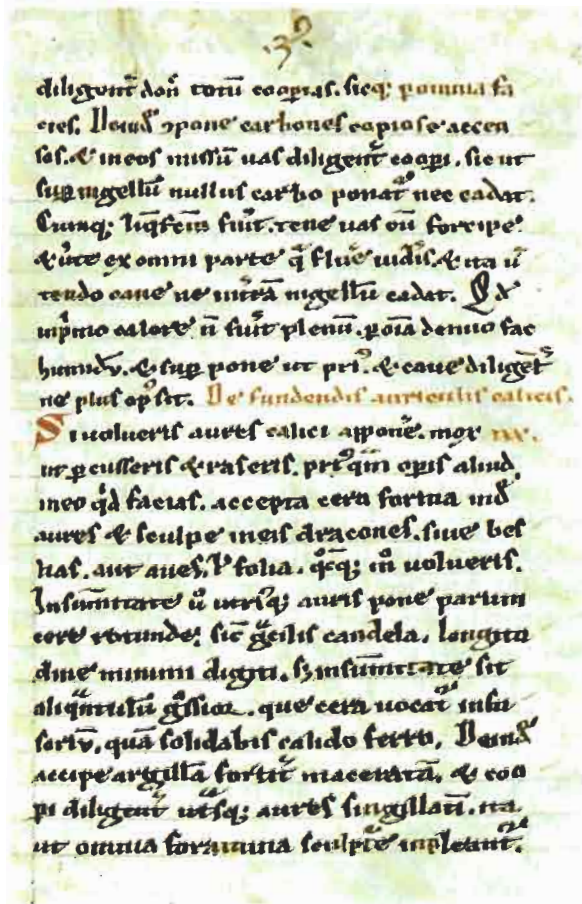 diligent͛ don͛ totū coop̄ias. sicq; p omnia fa
cies. Deind͛ ɔpone carbones copiose accen
sos. & in eos missū uas diligent͛ coop̄i. sic ut
sup̄ nigellū nullus carbo ponat᷑ nec cadat.
Cumq; liq̄fcm̄ fuit͛. tene uas cū forcipe
& u͛te ex omni parte q̄ flu͛e uid͛is. & ita u͛
tendo caue ne in t͛rā nigellū cadat. Qd͛
in p̄mo calore n̄ fu͛it plenū. p oīa denuo fac
humidū. & sup̄ pone ut pri᷒. & caue diligēt͛
ne plus op᷒ sit. De fundendis auriculis calicis.
Si uolueris aures calici appon͛e. mox xxx.
ut p̱cusseris & raseris. pri᷒q̄m op̄is aliud
in eo qͥd facias. accepta cera forma ind͛
aures & sculpe in eis dracones. siue bes
tias. aut aues. ł folia. q̊cq; m̊ uolueris.
In sūmitate ů utri᷒q; auris pone parum
cere rotunde. sic̄ gͣcilis candela. longitu
dine minimi digiti. s; in sūmitate sit
aliqͣntulū gͦssior. que cera uocat᷑ infu
soriū. quā solidabis calido ferro. Deind͛
accipe argillā fortit͛ maceratā. & coo
pi diligent͛ utͣsq; aures singillatī. ita
ut omnia foramina sculptͤ͛ impleant᷑.